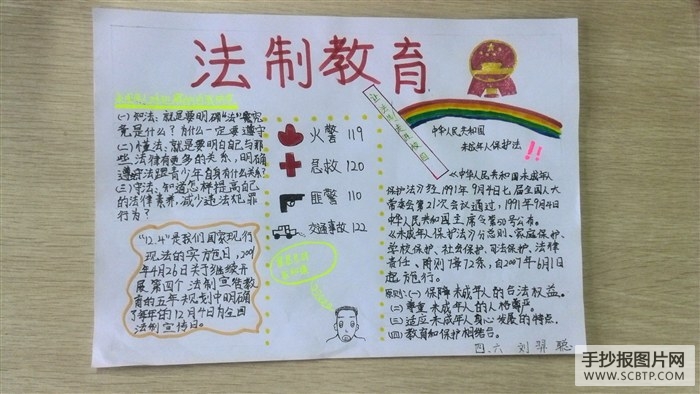 法制教育
(一)知法：就是要明确"法"究
竟是什么？为什么一定要遵守
(二)懂法：就是要明白自己与哪
些法律有更多的关系，明确
遵守法理青少年自身有什么关系？
(三)守法：知道怎样提高自己
的法律素养，减少违法犯罪
行为？
"12.4"是我们国家现行
现法的实方施日，2001
年4月26日关于继续开
展第四个法制宣传教
育的五年规划中明确
了每年的12月4日为全国
法制宣传日。
火警 119
急救 120
匪警 110
交通事故 122
中华人民共和国
未成年人保护法
!!
《中华人民共和国未成年人
保护法》经1991年9月4日七届全国人大
常委会第21次会议通过，1991年9月4日
中华人民共和国主席令第50号公布。
《未成年人保护法》分总则、家庭保护、
学校保护、社会保护、司法保护、法律
责任、附则7章72条，自2007年6月1日
起施行。
原则：(一)保障未成年人的合法权益。
(二)尊重未成年人的人格尊严。
(三)适应未成年人身心发展的特点。
(四)教育和保护相结合。
四、六 刘羿聪
手抄报图片网
WWW.SCBTP.COM